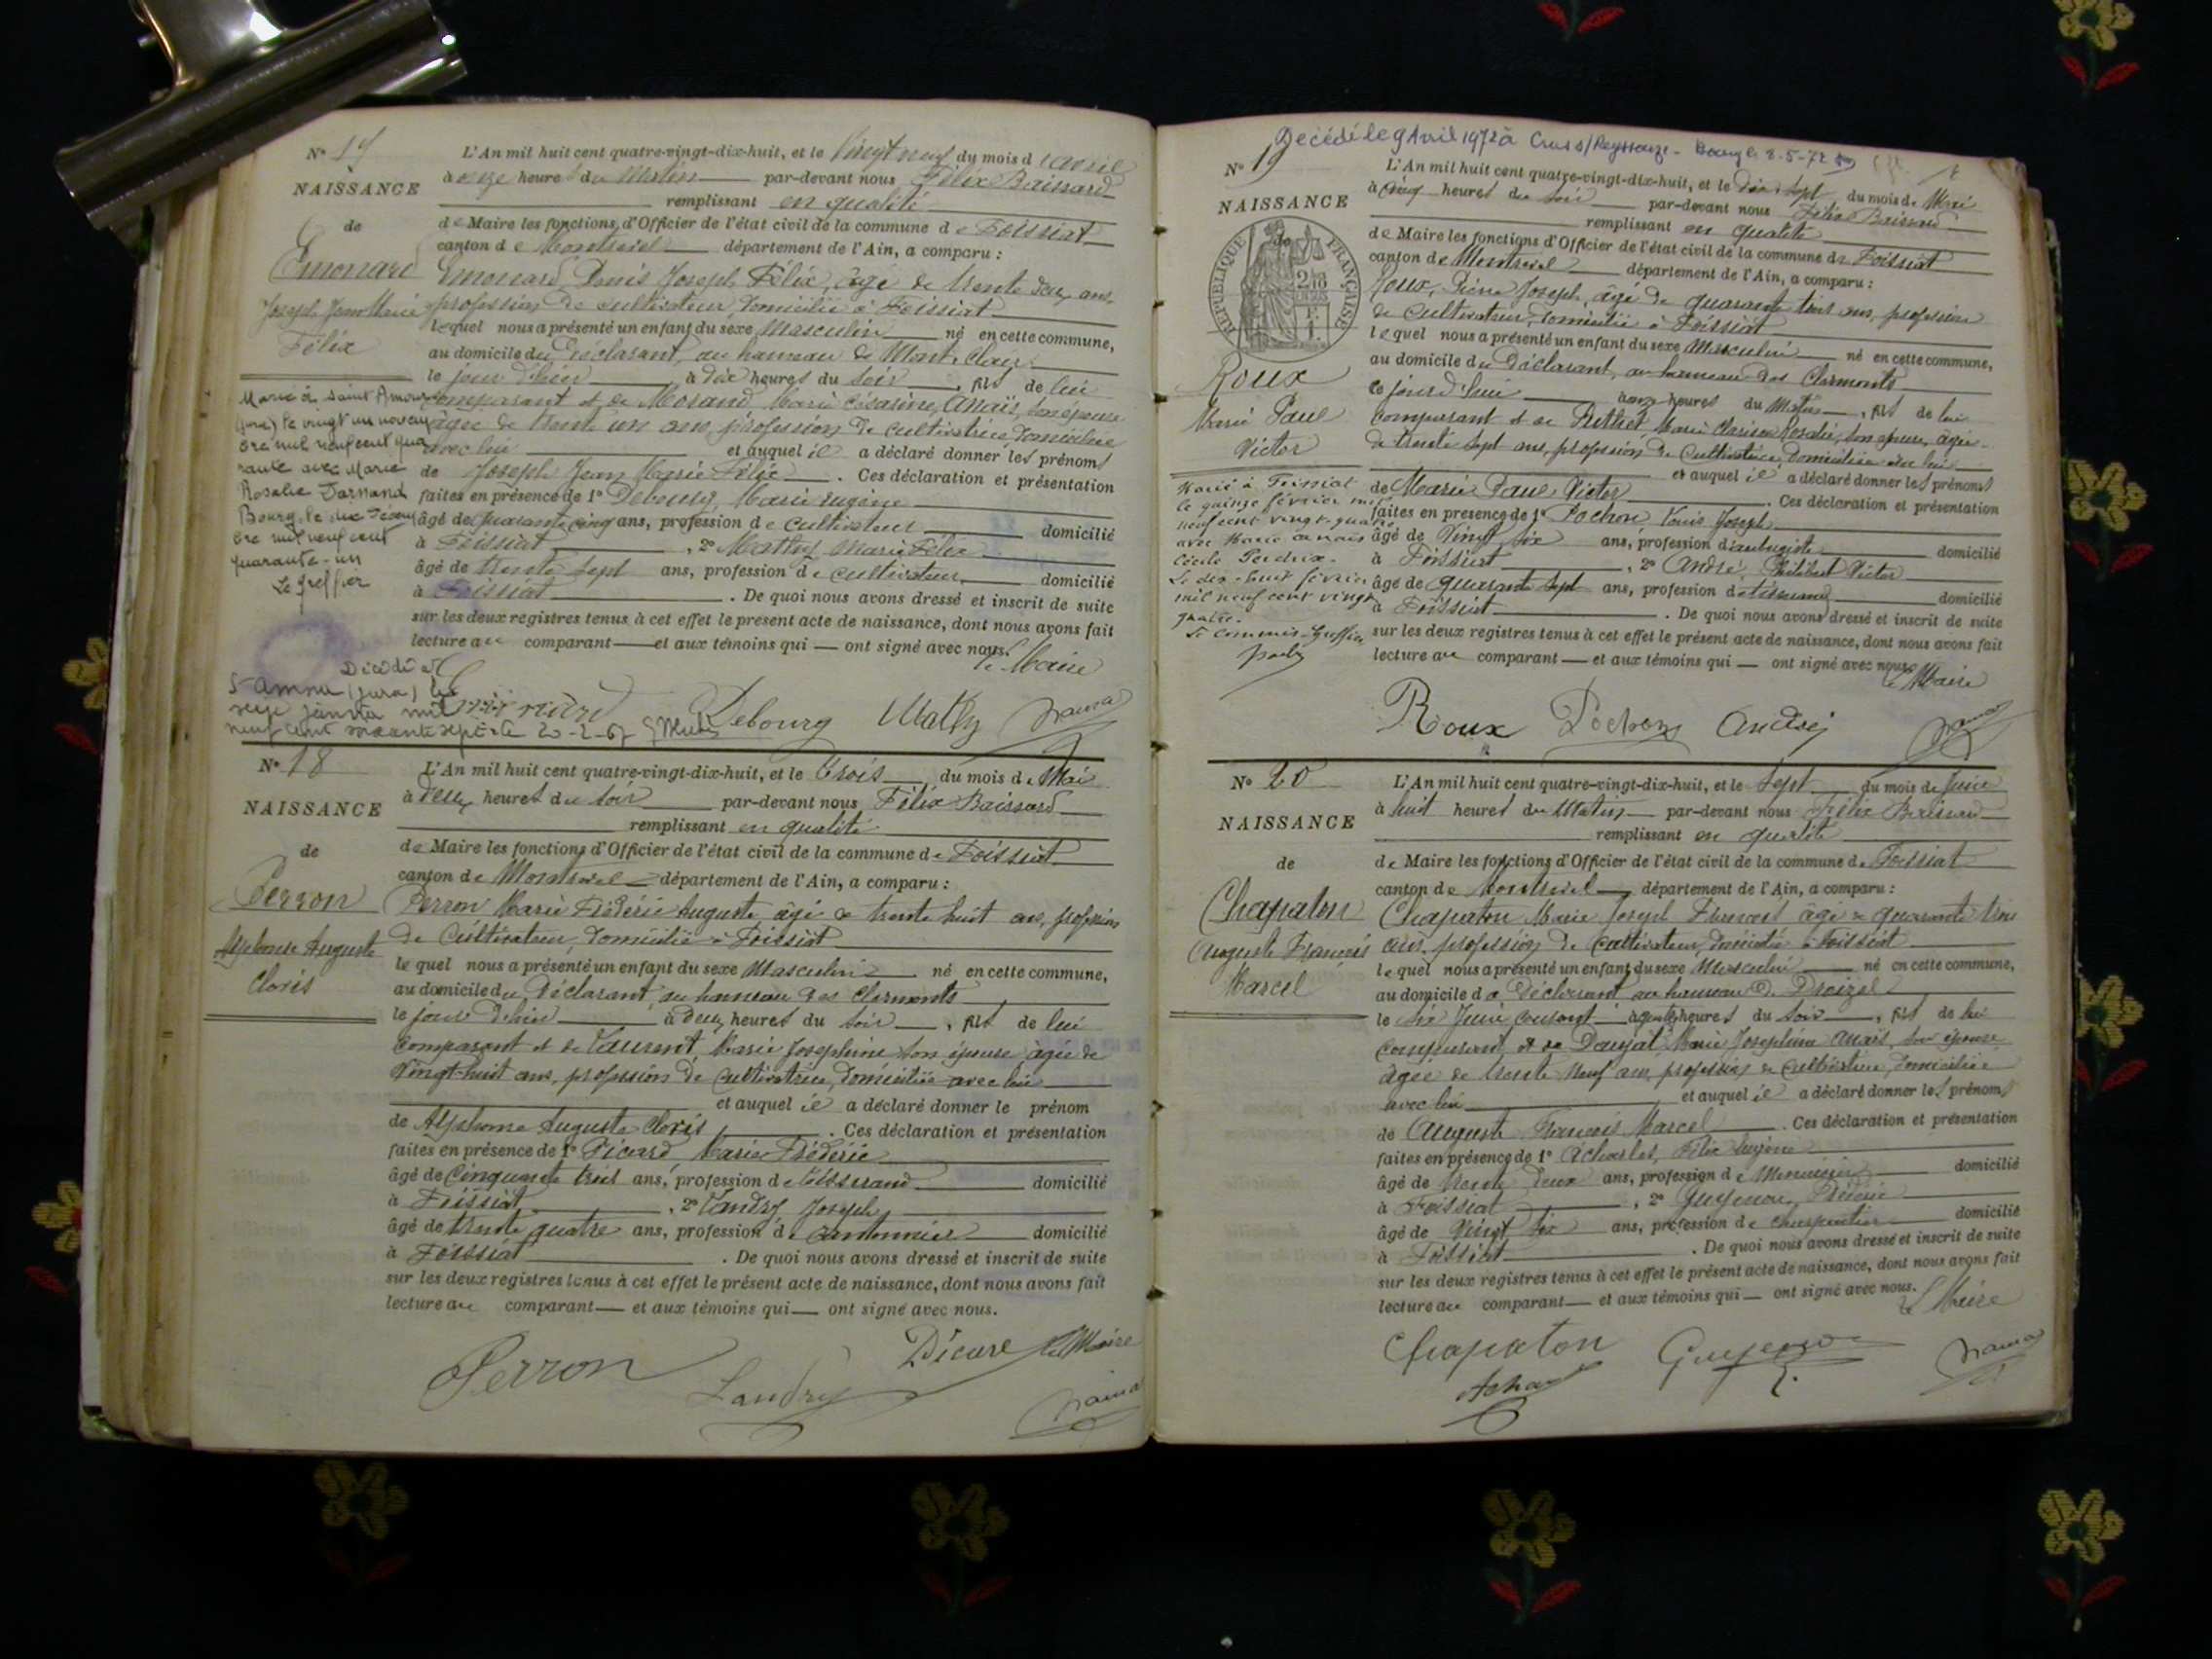 N° 17
NAISSANCE
de
Emonard
Joseph Jean Marie
Félix
Marié à Saint Amour
(Jura) le vingt un novem
bre mil neuf cent qua
rante avec Marie
Rosalie
Bourg, le dix Décem
bre mil neuf cent
quarante-un
Le Greffier
Décédé à
St Amour (Jura) le
seize janvier mil
neuf cent soixante sept. Le 20-2-67
L'An mil huit cent quatre-vingt-dix-huit, et le Vingt neuf du mois d'avril
à onze heures du Matin par-devant nous Félix Baissard
remplissant en qualité
de Maire les fonctions d'Officier de l'état civil de la commune de Foissiat
canton de Montrevel département de l'Ain, a comparu :
Emonard, Denis Joseph Félix, âgé de trente deux ans,
profession de cultivateur, domicilié à Foissiat
lequel nous a présenté un enfant du sexe Masculin né en cette commune,
au domicile du Déclarant, au hameau de Mont Clair
le jour d'hier à dix heures du soir, fils de lui
comparant et de Morand Marie Césarine, Anaïs, son épouse
âgée de trente un ans, profession de cultivatrice domiciliée
avec lui et auquel il a déclaré donner les prénoms
de Joseph Jean Marie Félix. Ces déclaration et présentation
faites en présence de 1° Debourg, Marie Eugène
âgé de quarante cinq ans, profession de cultivateur domicilié
à Foissiat, 2° Mathy Marie Félix
âgé de trente sept ans, profession de cultivateur domicilié
à Foissiat. De quoi nous avons dressé et inscrit de suite
sur les deux registres tenus à cet effet le présent acte de naissance, dont nous avons fait
lecture au comparant et aux témoins qui ont signé avec nous.
Le Maire
Debourg Mathy
N° 18
NAISSANCE
de
Perron
Alphonse Auguste
Cloris
L'An mil huit cent quatre-vingt-dix-huit, et le trois du mois de Mai
à deux heures du soir par-devant nous Félix Baissard
remplissant en qualité
de Maire les fonctions d'Officier de l'état civil de la commune de Foissiat
canton de Montrevel département de l'Ain, a comparu :
Perron Marie Frédéric Auguste, âgé de trente huit ans, profession
de Cultivateur, domicilié à Foissiat
lequel nous a présenté un enfant du sexe Masculin né en cette commune,
au domicile du Déclarant au hameau des Clermonts
le jour d'hier à deux heures du soir, fils de lui
comparant et de Laurent, Marie Joséphine son épouse âgée de
Vingt-huit ans, profession de cultivatrice, domiciliée avec lui
et auquel il a déclaré donner le prénom
de Alphonse Auguste Cloris. Ces déclaration et présentation
faites en présence de 1° Picard Marie Frédéric
âgé de Cinquante trois ans, profession de tisserand domicilié
à Foissiat, 2° Landry Joseph
âgé de trente quatre ans, profession de cantonnier domicilié
à Foissiat. De quoi nous avons dressé et inscrit de suite
sur les deux registres tenus à cet effet le présent acte de naissance, dont nous avons fait
lecture au comparant et aux témoins qui ont signé avec nous.
Perron Landry Picard Le Maire
Décédé le 9 Avril 1972 à Cras s/Reyssouze - Bourg le 8-5-72
N° 19
NAISSANCE
de
RÉPUBLIQUE FRANÇAISE
Roux
Marie Paul
Victor
Marié à Foissiat
le quinze février mil
neuf cent vingt-quatre
avec Marie Anaïs
Cécile Perdrix.
Le dix-huit février
mil neuf cent vingt
quatre.
Le Commis-Greffier
L'An mil huit cent quatre-vingt-dix-huit, et le dix sept du mois de Mai
à cinq heures du soir par-devant nous Félix Baissard
remplissant en qualité
de Maire les fonctions d'Officier de l'état civil de la commune de Foissiat
canton de Montrevel département de l'Ain, a comparu :
Roux, Pierre Joseph, âgé de quarante trois ans, profession
de Cultivateur, domicilié à Foissiat
lequel nous a présenté un enfant du sexe Masculin né en cette commune,
au domicile du Déclarant, au hameau des Clermonts
ce jourd'hui à onze heures du Matin, fils de lui
comparant et de Marie Clarisse Rosalie, son épouse, âgée
de trente sept ans, profession de Cultivatrice, domiciliée avec lui
et auquel il a déclaré donner les prénoms
de Marie Paul Victor. Ces déclaration et présentation
faites en présence de 1° Pochon, Louis Joseph
âgé de Vingt six ans, profession d'aubergiste domicilié
à Foissiat, 2° André, Philibert Victor
âgé de quarante sept ans, profession de tisserand domicilié
à Foissiat. De quoi nous avons dressé et inscrit de suite
sur les deux registres tenus à cet effet le présent acte de naissance, dont nous avons fait
lecture au comparant et aux témoins qui ont signé avec nous.
Le Maire
Roux Pochon André
N° 20
NAISSANCE
de
Chapaton
Auguste François
Marcel
L'An mil huit cent quatre-vingt-dix-huit, et le Sept du mois de Juin
à huit heures du Matin par-devant nous Félix Baissard
remplissant en qualité
de Maire les fonctions d'Officier de l'état civil de la commune de Foissiat
canton de Montrevel département de l'Ain, a comparu :
Chapaton Marie Joseph François âgé de quarante trois
ans, profession de Cultivateur, domicilié à Foissiat
lequel nous a présenté un enfant du sexe Masculin né en cette commune,
au domicile du Déclarant au hameau
le six Juin courant à heures du soir, fils de lui
comparant et de Daujat, Marie Joséphine Anaïs, son épouse
âgée de trente neuf ans, profession de Cultivatrice, domiciliée
avec lui et auquel il a déclaré donner les prénoms
de Auguste François Marcel. Ces déclaration et présentation
faites en présence de 1° Acharles, Félix Eugène
âgé de trente deux ans, profession de Menuisier domicilié
à Foissiat, 2°
âgé de Vingt six ans, profession de charpentier domicilié
à Foissiat. De quoi nous avons dressé et inscrit de suite
sur les deux registres tenus à cet effet le présent acte de naissance, dont nous avons fait
lecture au comparant et aux témoins qui ont signé avec nous.
Le Maire
Chapaton